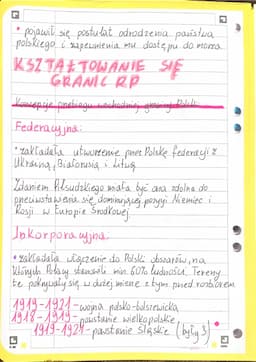 • pojawił się postulat odrodzenia państwa
polskiego i zapewnienia mu dostępu do morza
KSZTAŁTOWANIE SIĘ
GRANIC RP
Koncepcje przebiegu wschodniej granicy Polski
Federacyjna:
• zakładała utworzenie przez Polskę federacji z
Ukrainą, Białorusią i Litwą
Zdaniem Piłsudskiego miała być ona zdolna do
przeciwstawienia się dominującej pozycji Niemiec i
Rosji w Europie Środkowej
Inkorporacyjna:
• zakładała włączenie do Polski obszarów, na
których Polacy stanowili min. 60% ludności. Tereny
te pokrywały się w dużej mierze z tymi przed rozbiorem
1919-1921 - wojna polsko-bolszewicka
1918-1919 - powstanie wielkopolskie
1919-1921 - powstanie śląskie (były 3)